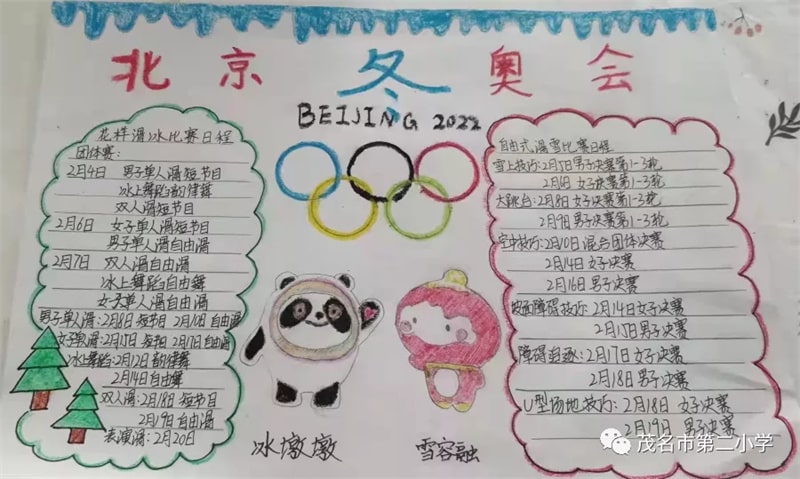 北京冬奥会
BEIJING 2022
花样滑冰比赛日程
团体赛:
2月4日 男子单人滑短节目
冰上舞蹈韵律舞
双人滑短节目
2月6日 女子单人滑短节目
男子单人滑自由滑
2月7日 双人滑自由滑
冰上舞蹈自由舞
女子单人滑自由滑
男子单人滑:2月8日 短节目 2月10日 自由滑
女子单滑:2月15日 短节目 2月17日 自由滑
冰上舞蹈:2月12日 韵律舞
2月14日 自由舞
双人滑:2月18日 短节目
2月19日 自由滑
表演滑:2月20日
自由式滑雪比赛日程
雪上技巧:2月5日男子决赛第1-3轮
2月6日 女子决赛第1-3轮
大跳台:2月8日 女子决赛第1-3轮
2月9日 男子决赛第1-3轮
空中技巧:2月10日 混合团体决赛
2月14日 女子决赛
2月16日 男子决赛
坡面障碍技巧:2月14日女子决赛
2月15日男子决赛
障碍追逐:2月17日 女子决赛
2月18日 男子决赛
U型场地技巧:2月18日 女子决赛
2月19日 男子决赛
冰墩墩
雪容融
茂名市第二小学